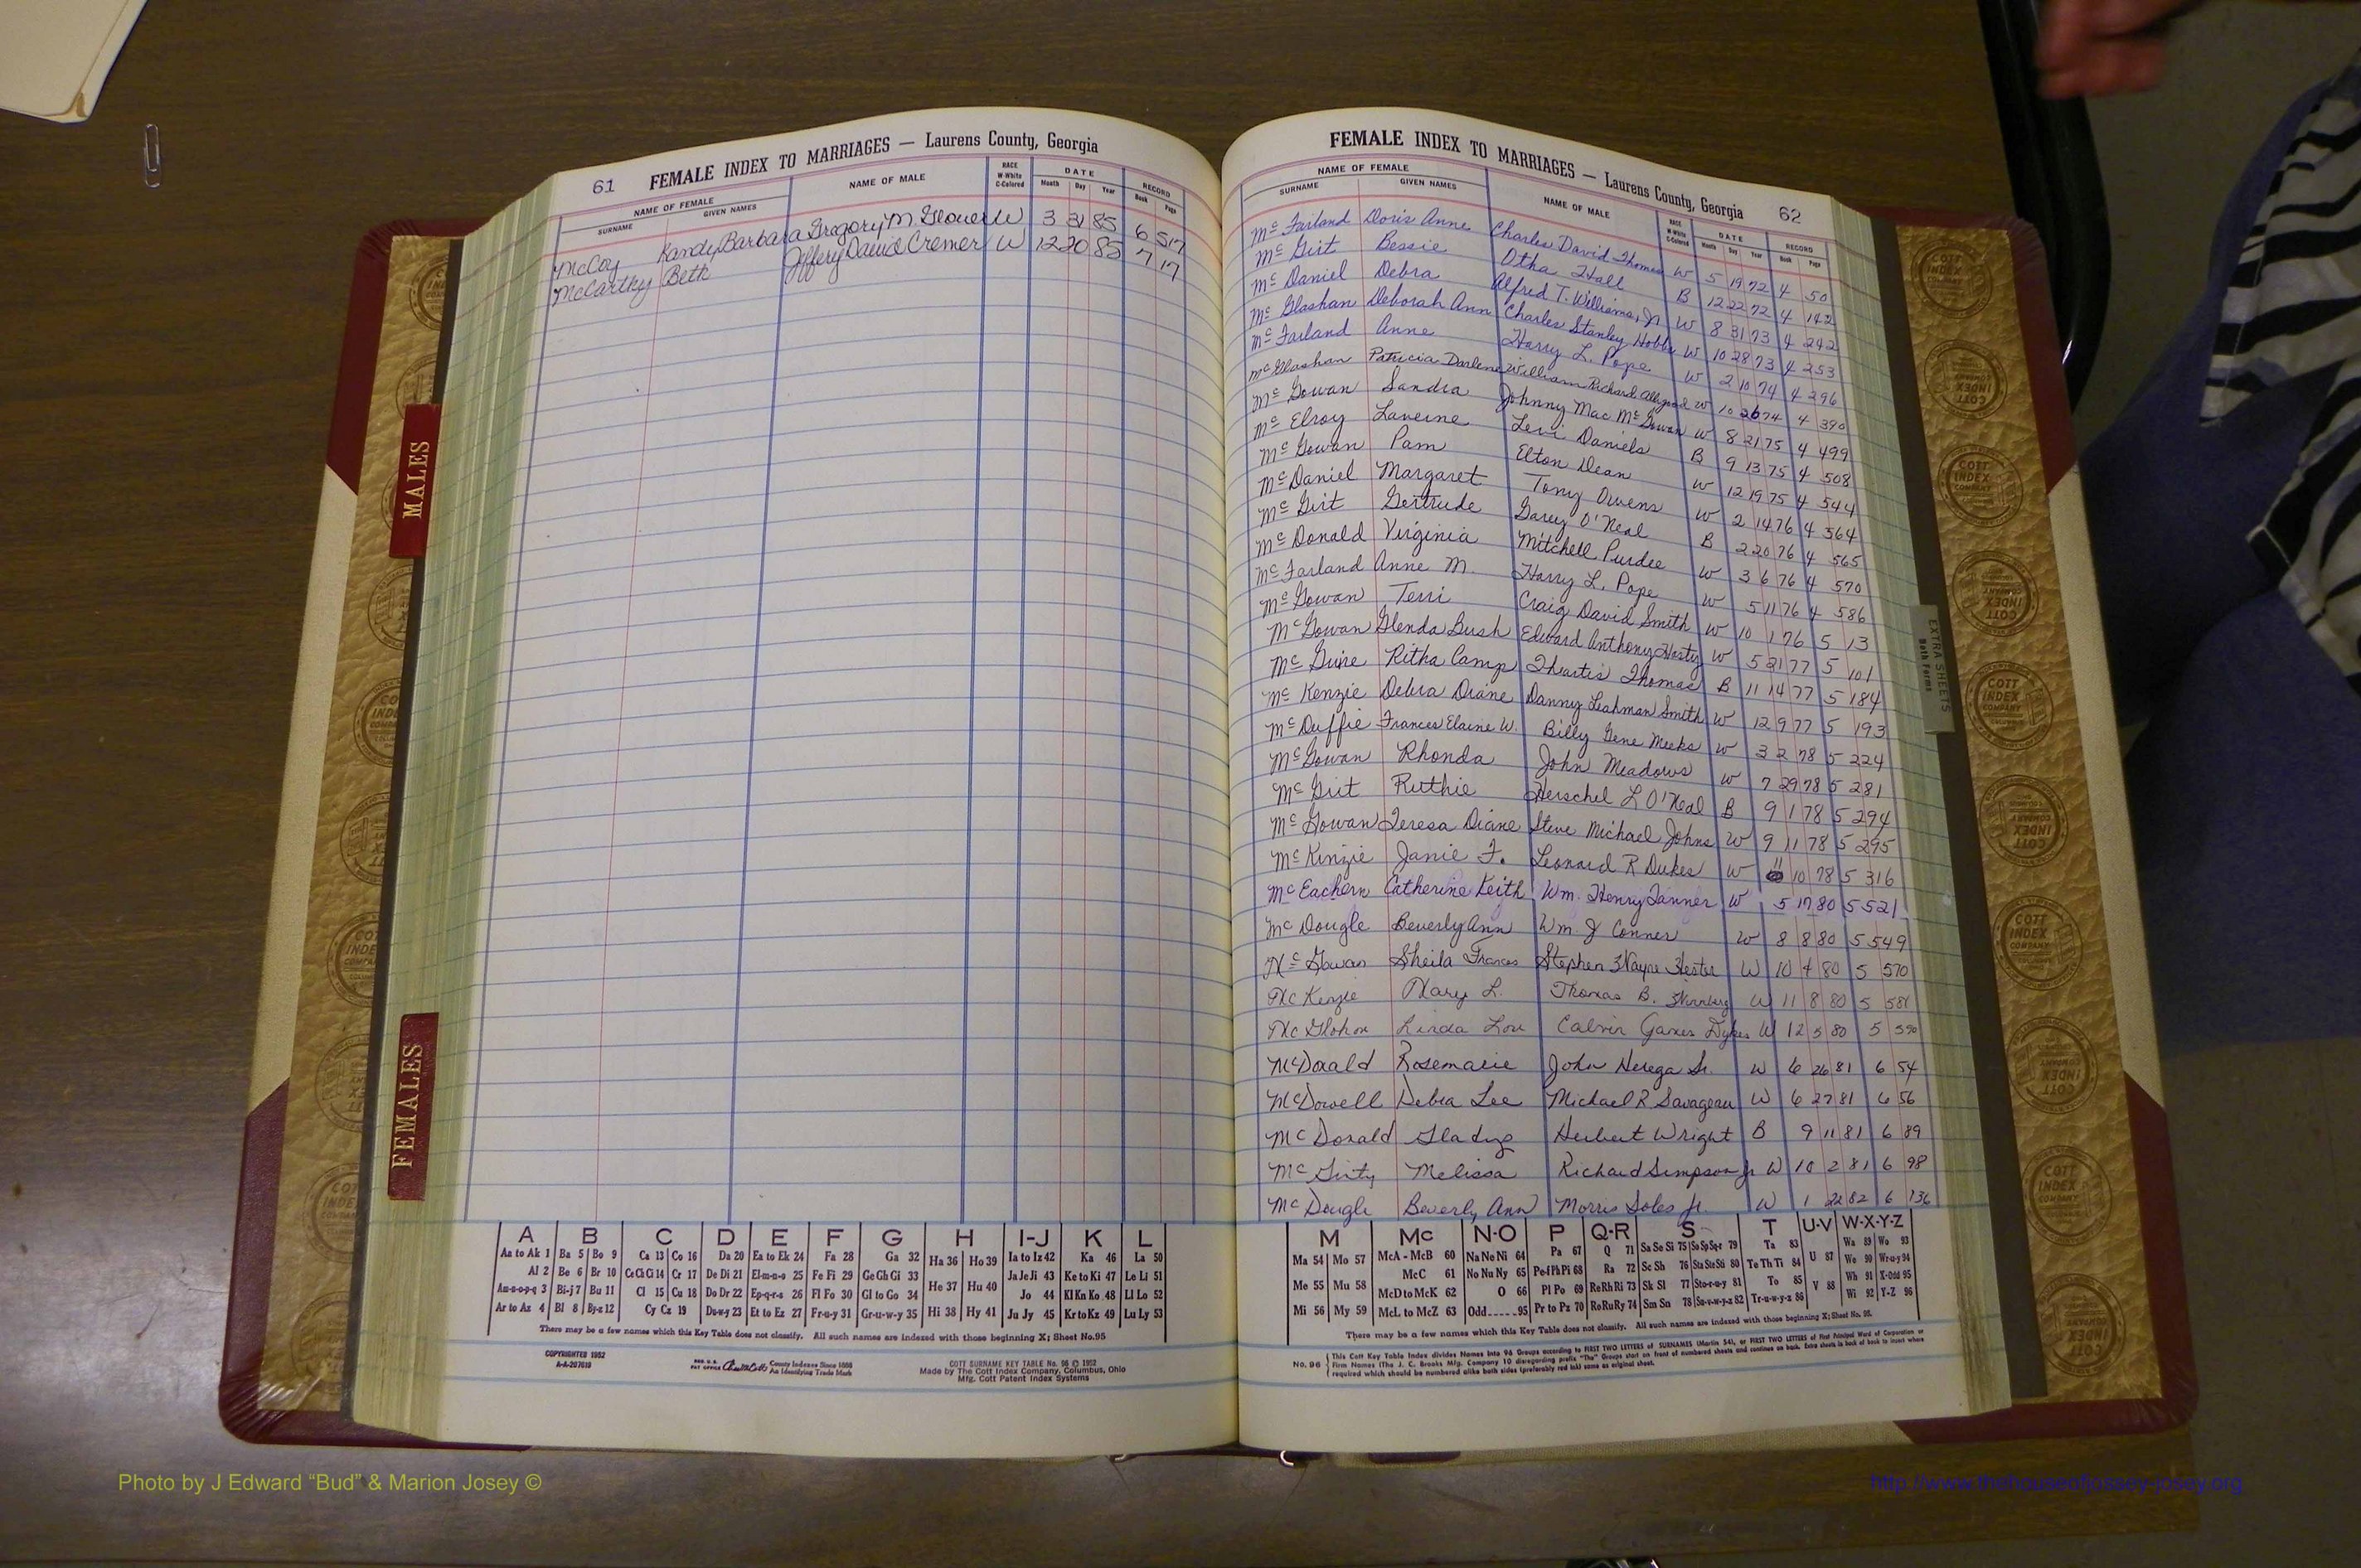 61 FEMALE INDEX TO MARRIAGES — Laurens County, Georgia
NAME OF FEMALE NAME OF MALE RACE W-White C-Colored DATE RECORD
SURNAME GIVEN NAMES Month Day Year Book Page
McCoy Kandy Barbara Gregory M. Glover W 3 31 85 6 517
McCarthy Beth Jeffery David Cremer W 12 20 85 7 17
MALES
FEMALES
A B C D E F G H I-J K L
Aa to Ak 1 Ba 5 Bo 9 Ca 13 Co 16 Da 20 Ea to Ek 24 Fa 28 Ga 32 Ha 36 Ho 39 Ia to Iz 42 Ka 46 La 50
Al 2 Be 6 Br 10 Ce Ch Ci 14 Cr 17 De Di 21 El-m-n-o 25 Fe Fi 29 Ge Gh Gi 33 He 37 Hu 40 Ja Je Ji 43 Ke to Ki 47 Le Li 51
Am-n-o-p-q 3 Bi-j 7 Bu 11 Cl 15 Cu 18 Do Dr 22 Ep-q-r-s 26 Fl Fo 30 Gl to Go 34 Jo 44 Kl Kn Ko 48 Ll Lo 52
Ar to Az 4 Bl 8 By-z 12 Cy Cz 19 Du-w-y 23 Et to Ez 27 Fr-u-y 31 Gr-u-w-y 35 Hi 38 Hy 41 Ju Jy 45 Kr to Kz 49 Lu Ly 53
There may be a few names which this Key Table does not classify. All such names are indexed with those beginning X; Sheet No. 95
COPYRIGHTED 1952
A-A-207619
REG. U.S. PAT OFFICE County Indexes Since 1888
An Identifying Trade Mark
COTT SURNAME KEY TABLE No. 96 © 1952
Made by The Cott Index Company, Columbus, Ohio
Mfg. Cott Patent Index Systems
FEMALE INDEX TO MARRIAGES — Laurens County, Georgia 62
NAME OF FEMALE NAME OF MALE RACE W-White C-Colored DATE RECORD
SURNAME GIVEN NAMES Month Day Year Book Page
McFarland Doris Anne Charles David Thomas W 5 19 72 4 50
McGirt Bessie Otha Hall B 12 22 72 4 142
McDaniel Debra Alfred T. Williams, Jr W 8 31 73 4 242
McGlashan Deborah Ann Charles Stanley Hobbs W 10 28 73 4 253
McFarland Anne Harry L. Pope W 2 10 74 4 296
McGlashan Patricia Darlene William Richard Allgood W 10 26 74 4 390
McGowan Sandra Johnny Mac McGowan W 8 21 75 4 499
McElroy Laverne Levi Daniels B 9 13 75 4 508
McGowan Pam Elton Dean W 12 19 75 4 544
McDaniel Margaret Tony Owens W 2 14 76 4 564
McGirt Gertrude Garey O'Neal B 2 20 76 4 565
McDonald Virginia Mitchell Purdee W 3 6 76 4 570
McFarland Anne M. Harry L. Pope W 5 11 76 4 586
McGowan Terri Craig David Smith W 10 1 76 5 13
McGowan Glenda Bush Edward Anthony Hasty W 5 21 77 5 101
Ritha Camp Thartis Thomas B 11 14 77 5 184
McKenzie Debra Diane Danny Leahman Smith W 12 9 77 5 193
McDuffie Frances Elaine W. Billy Gene Meeks W 3 2 78 5 224
McGowan Rhonda John Meadows W 7 29 78 5 281
McGrit Ruthie Herschel L O'Neal B 9 1 78 5 294
McGowan Teresa Diane Steve Michael Johns W 9 11 78 5 295
McKinzie Janie F. Leonard R Dukes W 11 10 78 5 316
McEachern Catherine Keith Wm. Henry Tanner W 5 17 80 5 521
McDougle Beverly Ann Wm. J Conner W 8 8 80 5 549
McGowan Sheila Frances Stephen Wayne Hester W 10 4 80 5 570
McKenzie Mary L. Thomas B. W 11 8 80 5 581
McGlohon Linda Lou Calvin Gaines Dykes W 12 5 80 5 590
McDonald Rosemarie John Herega Sr. W 6 26 81 6 54
McDowell Debra Lee Michael R Savageau W 6 27 81 6 56
McDonald Gladys Herbert Wright B 9 11 81 6 89
McGirty Melissa Richard Simpson Jr W 10 2 81 6 98
McDougle Beverly Ann Morris Soles Jr. W 1 22 82 6 136
EXTRA SHEETS
Both Forms
M Mc N-O P Q-R S T U-V W-X-Y-Z
Ma 54 Mo 57 McA - McB 60 Na Ne Ni 64 Pa 67 Q 71 Sa Se Si 75 So Sp Sq-r 79 Ta 83 U 87 Wa 89 Wo 93
Me 55 Mu 58 McC 61 No Nu Ny 65 Pe-f Ph Pi 68 Ra 72 Sc Sh 76 Sta Ste Sti 80 Te Th Ti 84 We 90 Wr-u-y 94
McD to McK 62 O 66 Pl Po 69 Re Rh Ri 73 Sk Sl 77 Sto-r-u-y 81 To 85 V 88 Wh 91 X-Odd 95
Mi 56 My 59 McL to McZ 63 Odd 95 Pr to Pz 70 Ro Ru Ry 74 Sm Sn 78 Su-v-w-y-z 82 Tr-u-w-y-z 86 Wi 92 Y-Z 96
There may be a few names which this Key Table does not classify. All such names are indexed with those beginning X; Sheet No. 95.
No. 96 This Cott Key Table Index divides Names into 96 Groups according to FIRST TWO LETTERS of SURNAMES (Martin 54), or FIRST TWO LETTERS of First Principal Word of Corporation or
Firm Names (The J. C. Brooks Mfg. Company 10 disregarding prefix "The" Groups start on front of numbered sheets and continue on back. Extra sheets in back of book to insert where
required which should be numbered alike both sides (preferably red ink) same as original sheet.
COTT INDEX COMPANY
Photo by J Edward “Bud” & Marion Josey ©
http://www.thehouseofjossey-josey.org